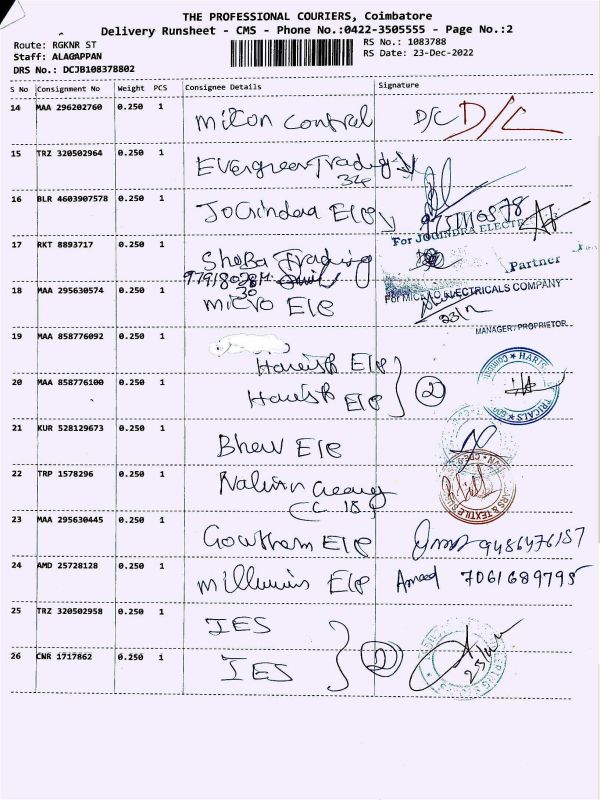 THE PROFESSIONAL COURIERS, Coimbatore
Delivery Runsheet - CMS - Phone No.:0422-3505555 - Page No.:2
Route: RGKNR ST
RS No.: 1083788
Staff: ALAGAPPAN
RS Date: 23-Dec-2022
DRS No.: DCJB108378802
S No Consignment No Weight PCS Consignee Details Signature
14 MAA 296202760 0.250 1 Micon Control D/C D/C
15 TRZ 320502964 0.250 1 Evergreen Trading
16 BLR 4603907578 0.250 1 Jogindaa Ele
For JOGINDRA ELECTR
17 RKT 8893717 0.250 1 Sheba Trading
Partner
18 MAA 295630574 0.250 1 Micro Ele
For MICRO ELECTRICALS COMPANY
23/12
MANAGER/PROPRIETOR
19 MAA 858776092 0.250 1 Harish Ele
20 MAA 858776100 0.250 1 Harish Ele 2
HARIS
TRICALS
21 KUR 528129673 0.250 1 Bhew Ele
22 TRP 1578296 0.250 1
& TEXTILE
23 MAA 295630445 0.250 1 Gowtham Ele 9486476157
24 AMD 25728128 0.250 1 Ele Amad 7061689795
25 TRZ 320502958 0.250 1 IES
26 CNR 1717862 0.250 1 IES 2